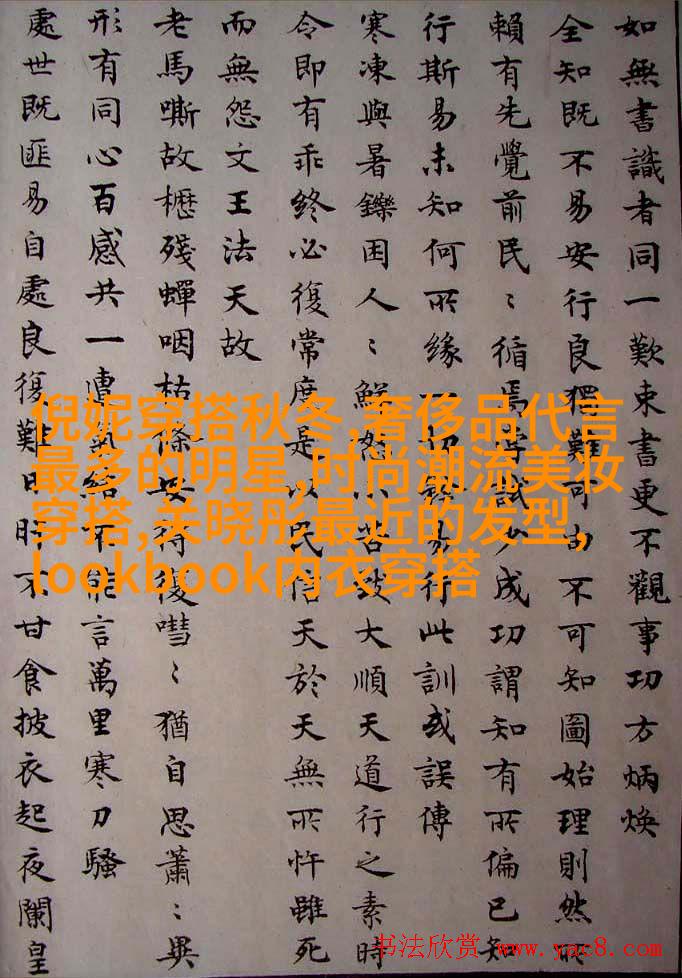 如無書識者同一歎束書更不觀事功方炳煥
全知既不易安行良獨難可由不可知圖始理則然所
賴有先覺前民〻循焉試少成功謂知有所偏已知
行斯易未知何所緣易行此訓或誤傳
寒凍與暑鑠困人〻鮮怨小苦致大順天道行之素時
令即有乖終必復常度是以民信天於天無所忤雖死
而無怨文王法天故
老馬嘶故櫪殘蟬咽枯條安得復嘒〻猶自思蕭〻異
形有同心百感共一漕氣結不能言萬里寒刀騷
處世既匪易自處良復難日旰不甘食披衣起夜闌皇
倪妮穿搭秋冬,奢侈品代言
最多的明星,时尚潮流美妆
穿搭,关晓彤最近的发型,
lookbook内衣穿搭
书法欣赏 www.yac8.com